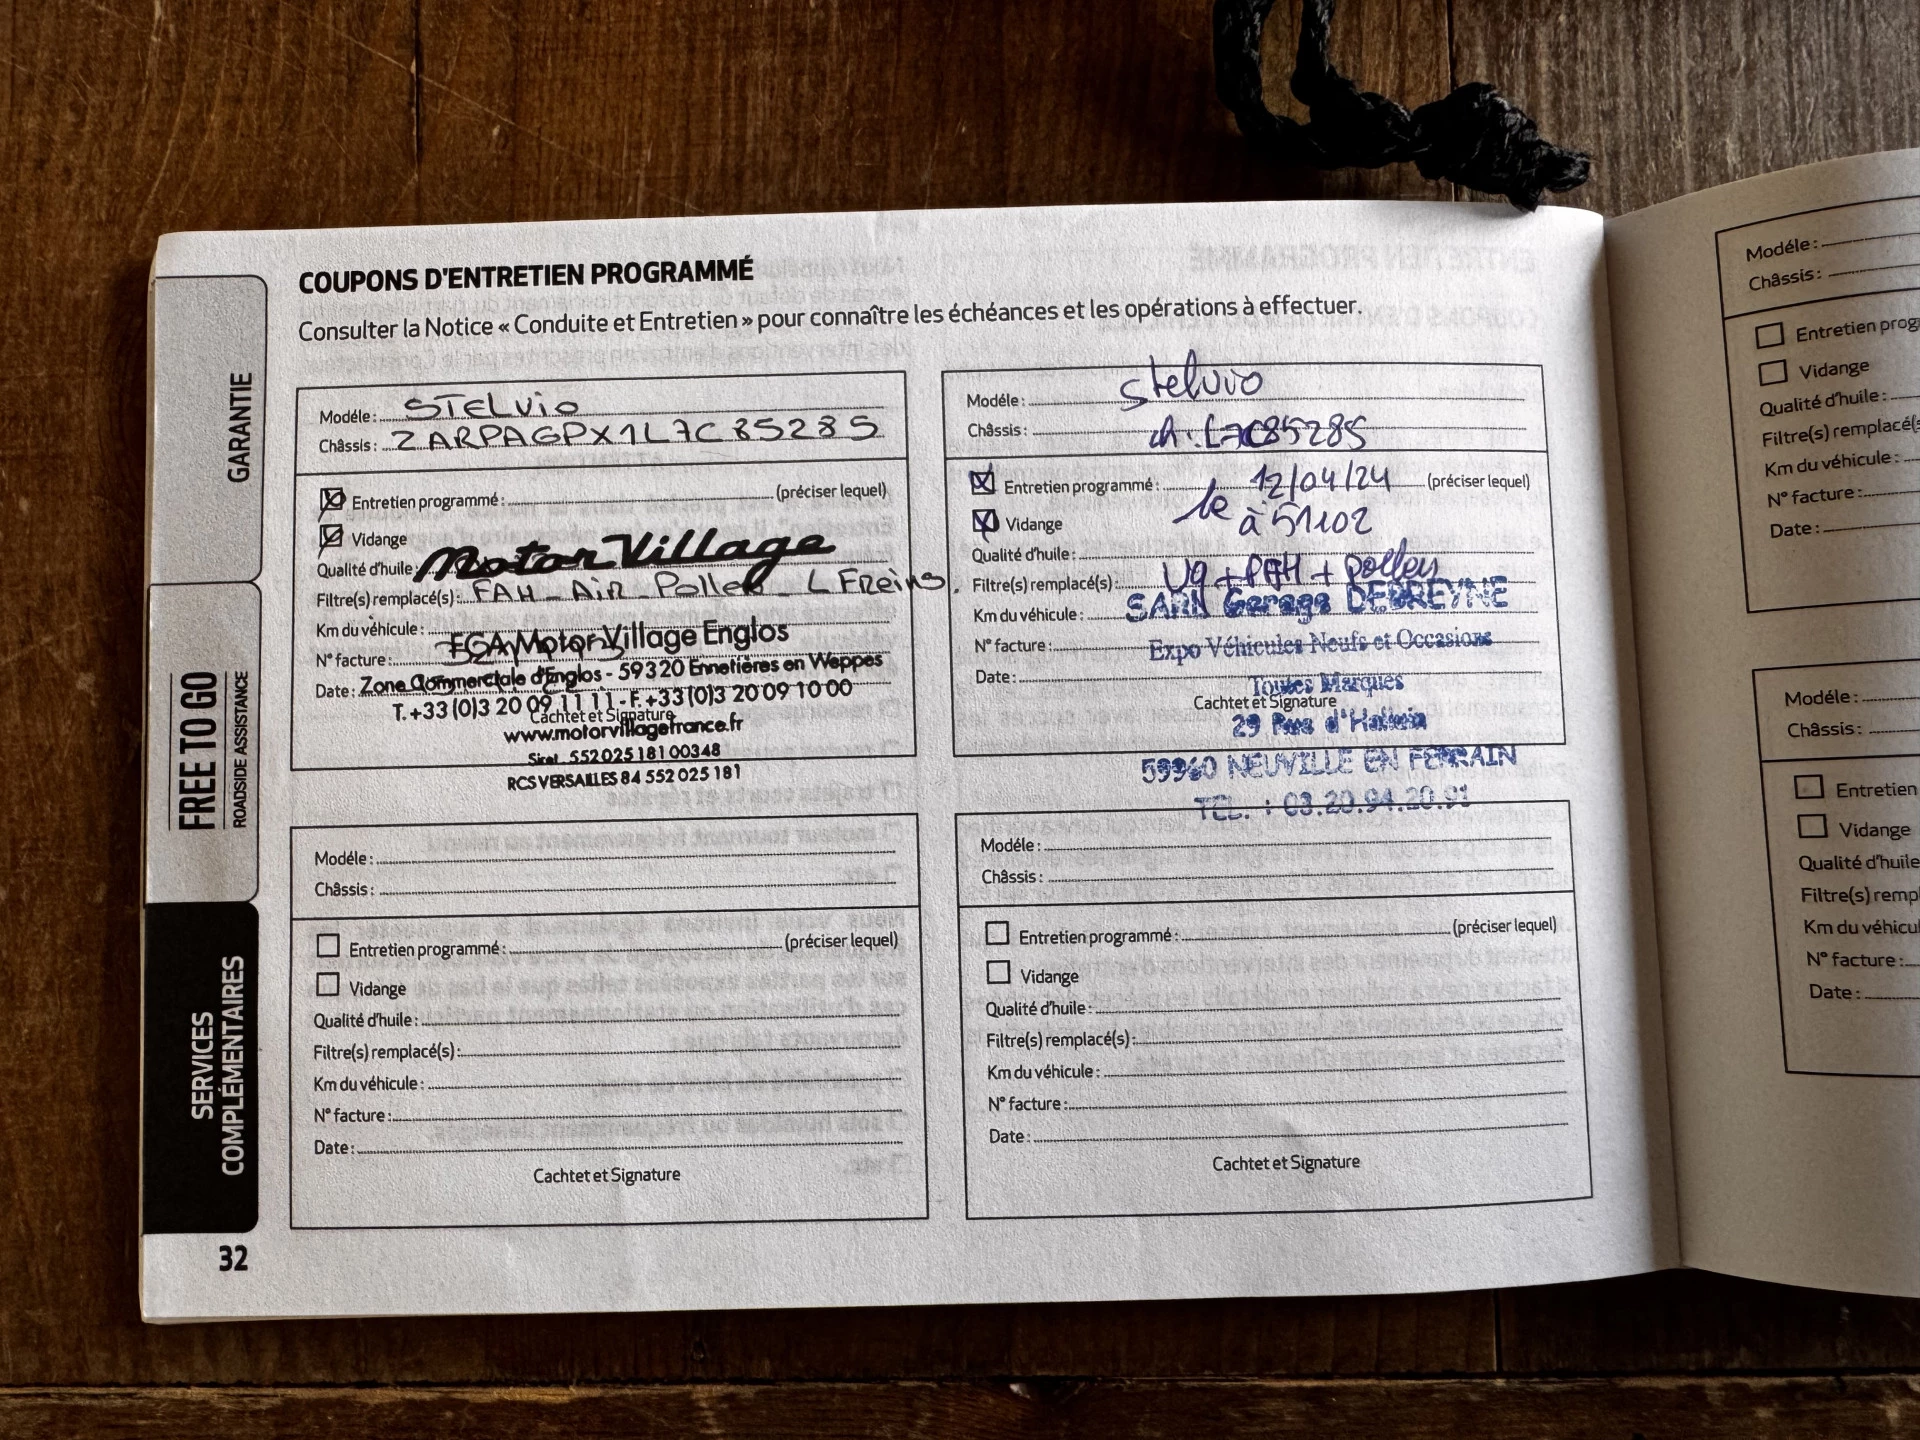 COUPONS D'ENTRETIEN PROGRAMMÉ
Consulter la Notice « Conduite et Entretien » pour connaître les échéances et les opérations à effectuer.
GARANTIE
FREE TO GO
ROADSIDE ASSISTANCE
SERVICES
COMPLÉMENTAIRES
32
Modéle : STELVIO
Châssis : ZARPAGPX1L7C85285
Entretien programmé : (préciser lequel)
Vidange
Motor Village
Qualité d'huile :
Filtre(s) remplacé(s) : FAH - Air - Pollen - L Freins.
Km du véhicule :
FCA Motor Village Englos
N° facture :
Zone Commerciale d'Englos - 59320 Ennetières en Weppes
Date :
T. +33 (0)3 20 09 11 11 - F. +33 (0)3 20 09 10 00
Cachtet et Signature
www.motorvillagefrance.fr
Siret 552 025 181 00348
RCS VERSAILLES 84 552 025 181
Modéle : Stelvio
Châssis : L7C85285
Entretien programmé : le 12/04/24 (préciser lequel)
Vidange à 51102
Qualité d'huile :
Filtre(s) remplacé(s) : + pollen
SARL Garage DEBREYNE
Km du véhicule :
N° facture : Expo Véhicules Neufs et Occasions
Date :
Toutes Marques
Cachtet et Signature
29 d'Halluin
59960 NEUVILLE EN FERRAIN
TEL. : 03.20.94.20.91
Modéle :
Châssis :
Entretien programmé : (préciser lequel)
Vidange
Qualité d'huile :
Filtre(s) remplacé(s) :
Km du véhicule :
N° facture :
Date :
Cachtet et Signature
Modéle :
Châssis :
Entretien programmé : (préciser lequel)
Vidange
Qualité d'huile :
Filtre(s) remplacé(s) :
Km du véhicule :
N° facture :
Date :
Cachtet et Signature
Modéle :
Châssis :
Entretien prog
Vidange
Qualité d'huile :
Filtre(s) remplacé(s
Km du véhicule :
N° facture :
Date :
Modéle :
Châssis :
Entretien
Vidange
Qualité d'huile
Filtre(s) rempl
Km du véhicul
N° facture :
Date :